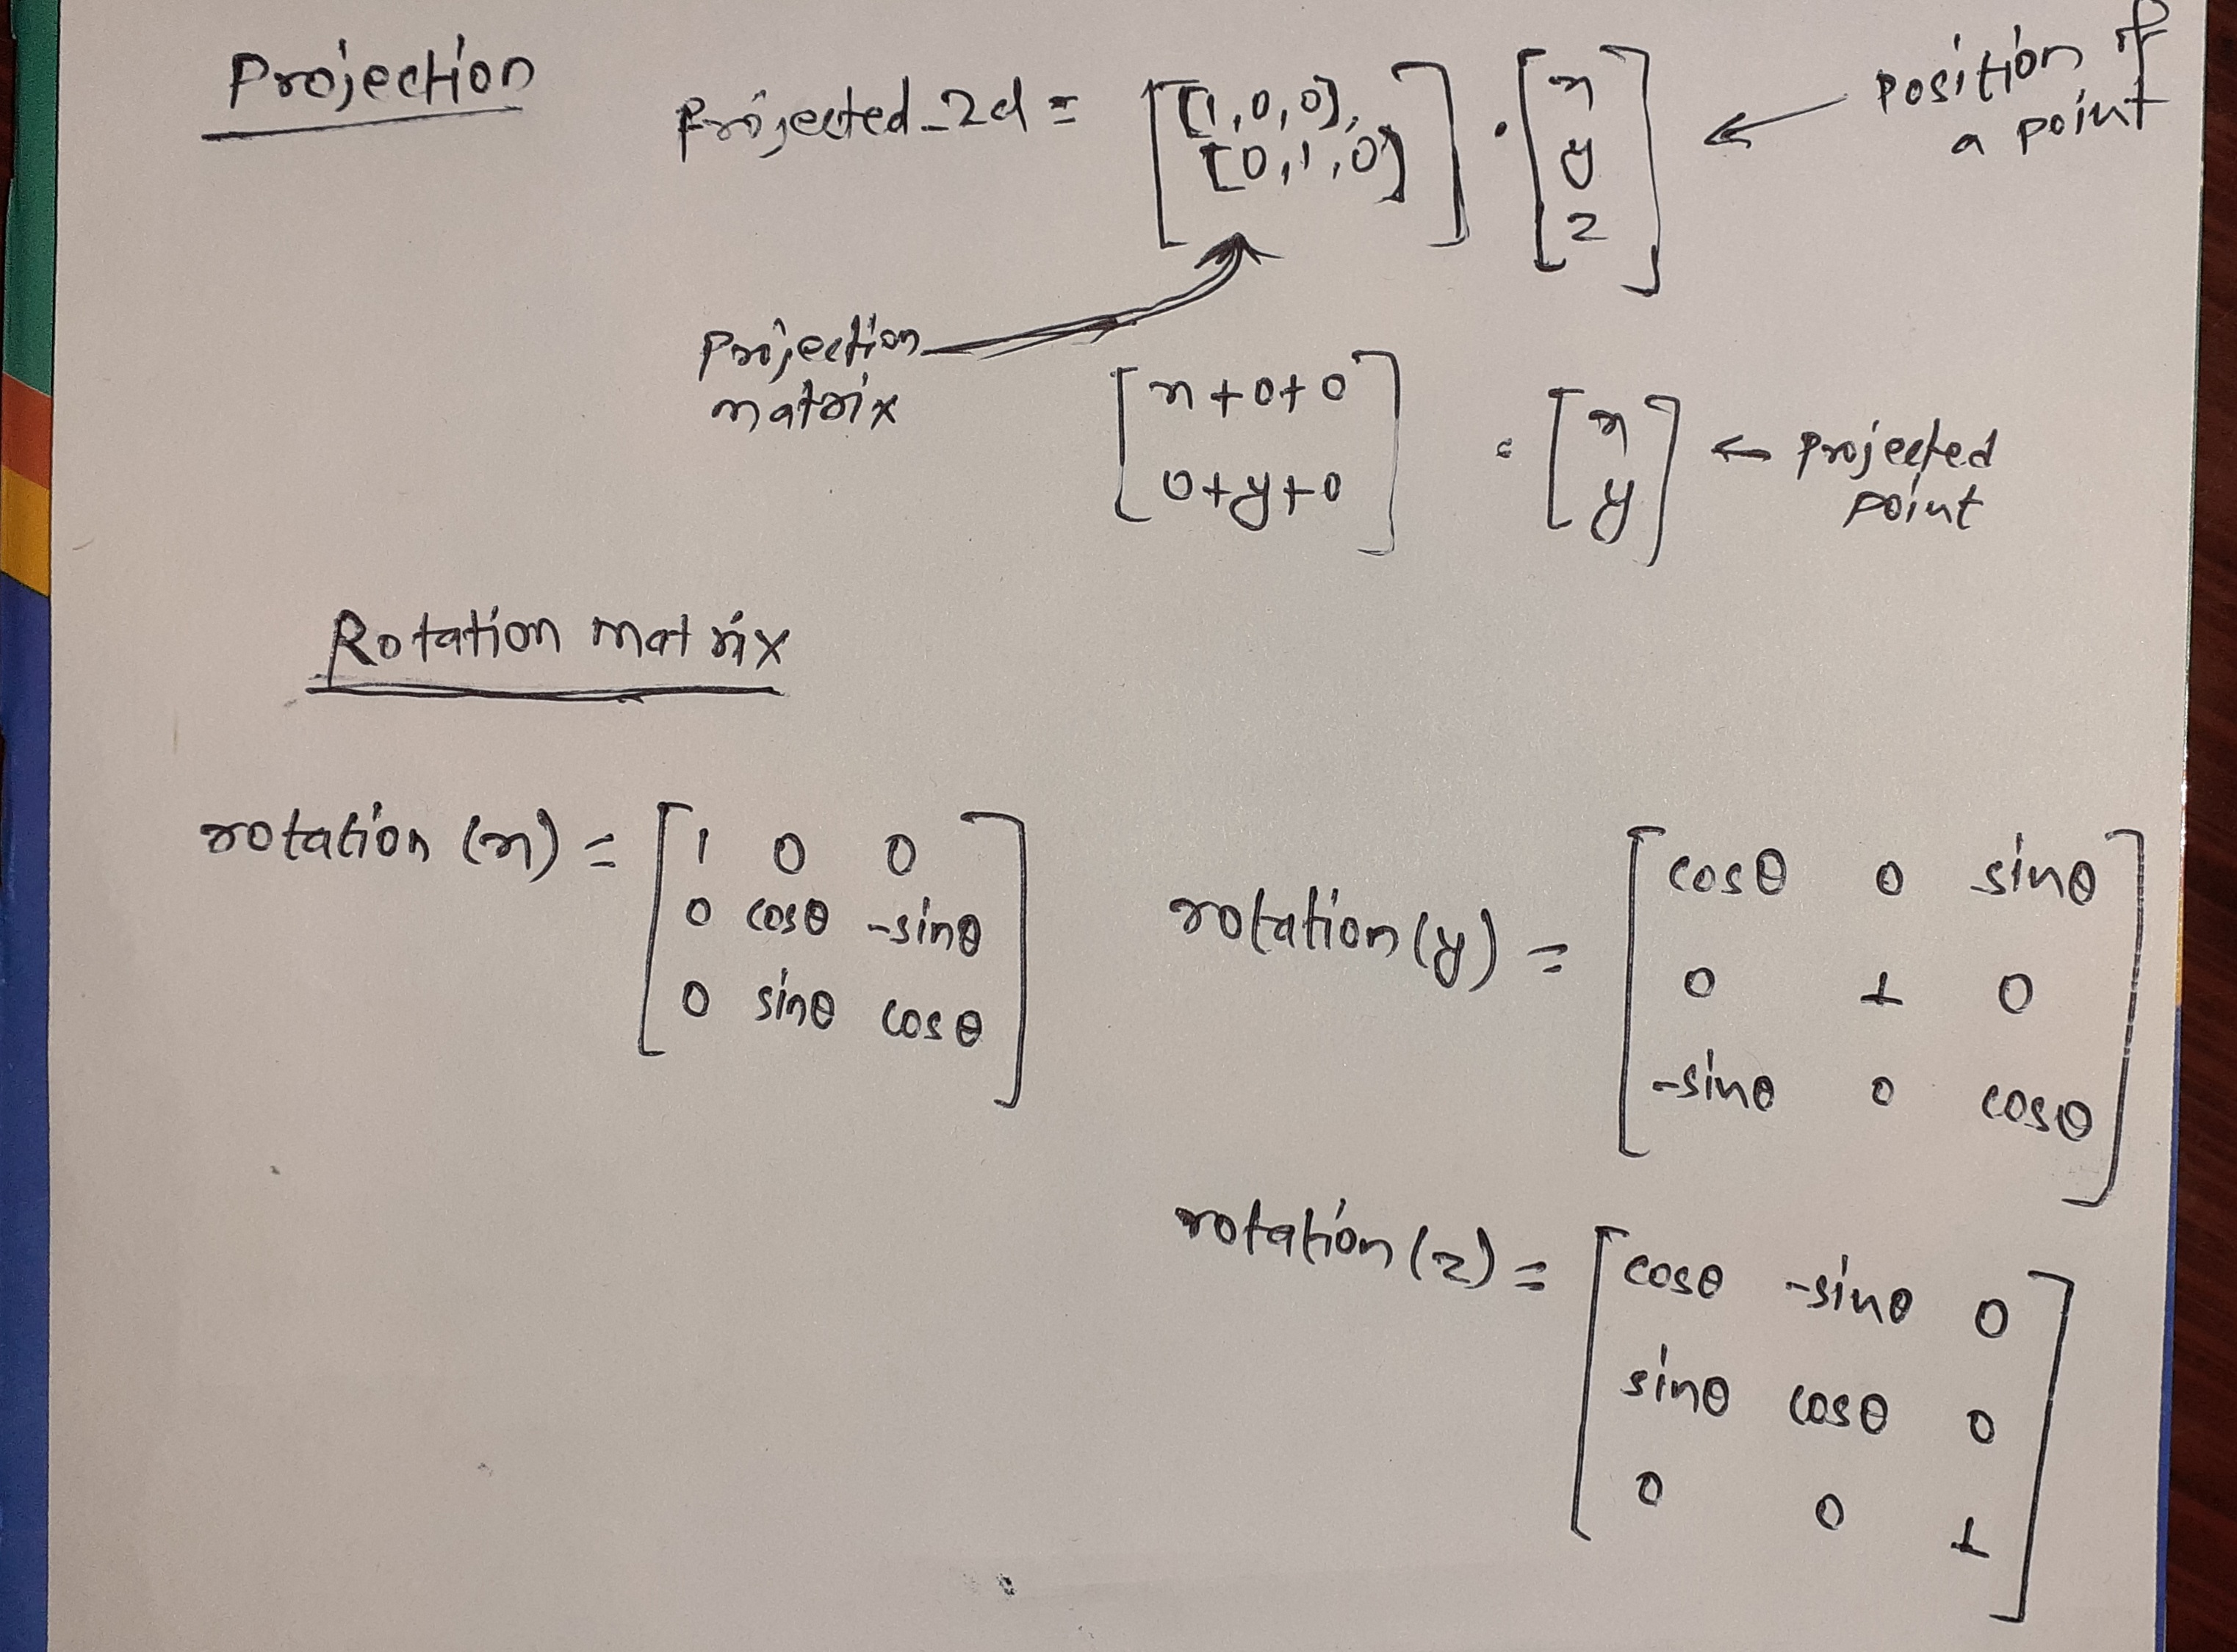 Projection
Projected_2d = [[1,0,0], [0,1,0]] . [x y z] ← position of a point
Projection matrix
[x+0+0 0+y+0] = [x y] ← projected point
Rotation matrix
rotation (x) = [1 0 0
0 cosθ -sinθ
0 sinθ cosθ]
rotation (y) = [cosθ 0 sinθ
0 1 0
-sinθ 0 cosθ]
rotation (z) = [cosθ -sinθ 0
sinθ cosθ 0
0 0 1]